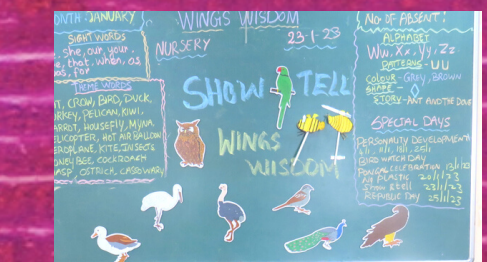 MONTH: JANUARY
SIGHT WORDS
she, our, your,
that, when, as
for
THEME WORDS
CROW, BIRD, DUCK,
PELICAN, KIWI,
HOUSEFLY, MYNA
HOT AIR BALLOON
KITE, INSECTS
COCKROACH
OSTRICH, CASSOWARY
WINGS WISDOM
NURSERY
23-1-23
SHOW TELL
WINGS
WISDOM
NO. OF ABSENT:
ALPHABET
Ww, Xx, Yy, Zz
PATTERNS - UU
COLOUR - GREY, BROWN
SHAPE -
STORY - ANT AND THE DOVE
SPECIAL DAYS
PERSONALITY DEVELOPMENT
BIRD WATCH DAY
PONGAL CELEBRATION 13/1/23
PLASTIC 20/1/23
SHOW & tell 23/1/23
REPUBLIC DAY 25/1/23